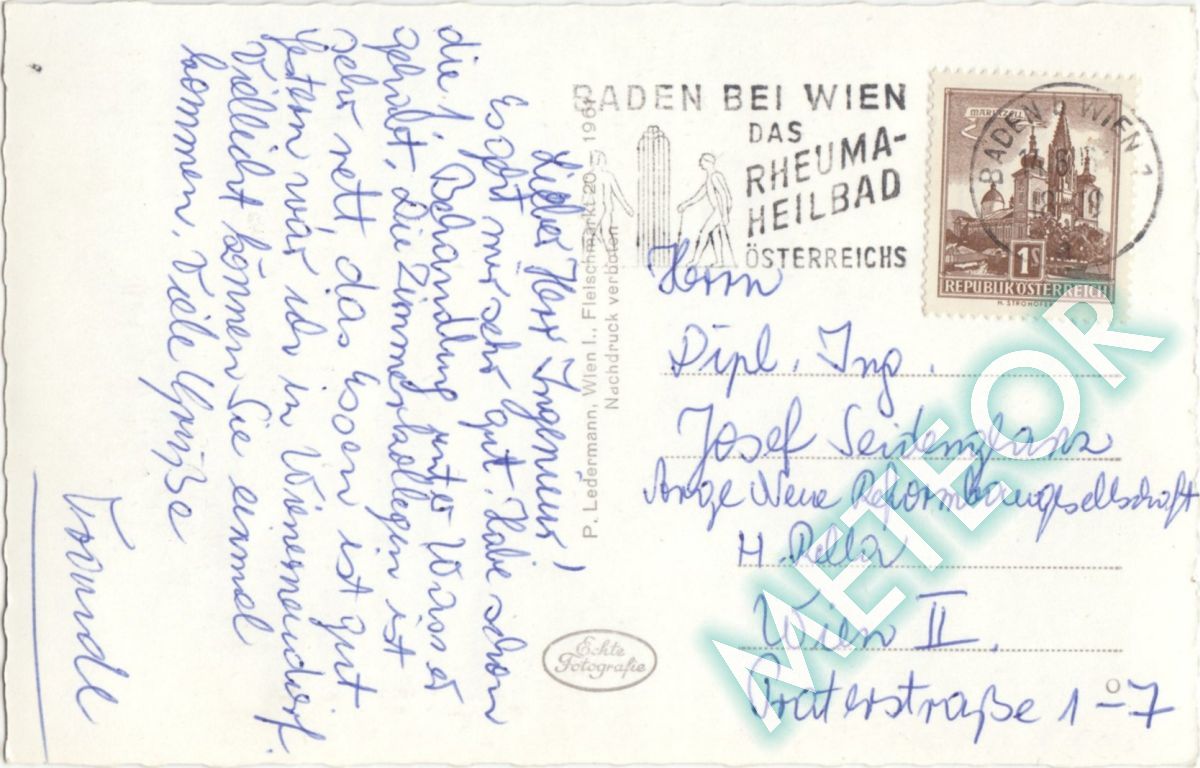 Lieber Herr Ingenieur!
Es geht mir sehr gut. Habe schon
die 1. Behandlung unter Wasser
gehabt, die Zimmerkollegin ist
sehr nett, das Essen ist gut
gestern war ich in Wienerneudorf.
Vielleicht können Sie einmal
kommen. Viele Grüße
Traudl
P. Ledermann, Wien I., Fleischmarkt 20 - 1961
Nachdruck verboten
Echte
Fotografie
BADEN BEI WIEN
DAS
RHEUMA-
HEILBAD
ÖSTERREICHS
BADEN B WIEN 1
MARIAZELL
1S
REPUBLIK ÖSTERREICH
H. STROHOFER
Herrn
Dipl. Ing.
Josef
Arge Neue Reformbaugesellschaft
H. Rella
Wien II.
Praterstraße 1-7
METEOR